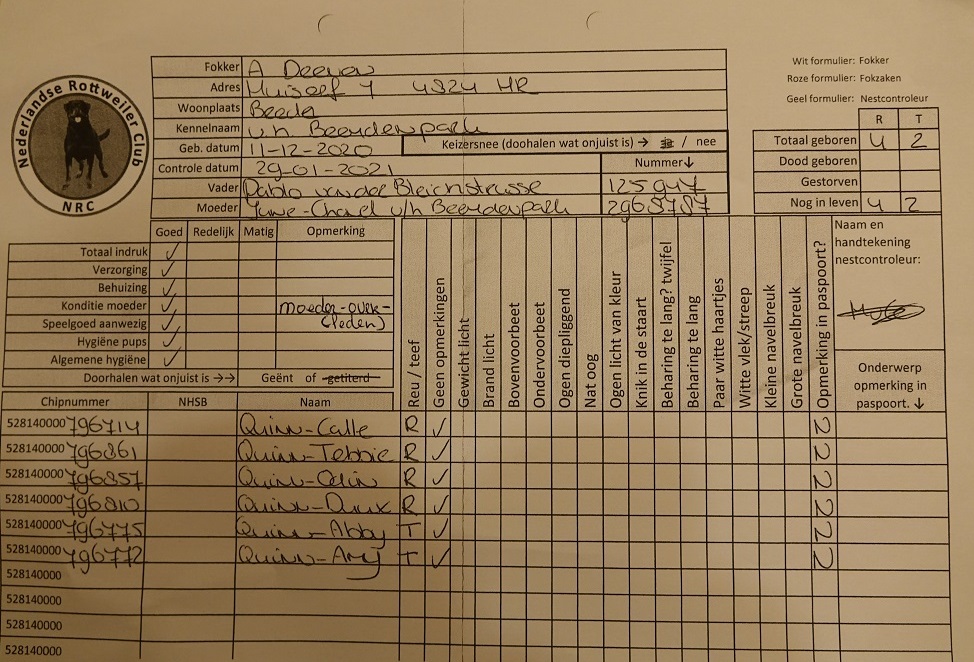 Nederlandse Rottweiler Club
NRC
Fokker A Deenen
Adres 4824 HR
Woonplaats Breda
Kennelnaam v.h. Beerdenpark
Geb. datum 11-12-2020 Keizersnee (doorhalen wat onjuist is) → / nee
Controle datum 29-01-2021 Nummer↓
Vader Pablo von der Bleichstrasse 125947
Moeder Chanel v/h Beerdenpark
Wit formulier: Fokker
Roze formulier: Fokzaken
Geel formulier: Nestcontroleur
R T
Totaal geboren 4 2
Dood geboren
Gestorven
Nog in leven 4 2
Goed Redelijk Matig Opmerking
Totaal indruk ✓
Verzorging ✓
Behuizing ✓
Konditie moeder ✓ moeder-over-
Speelgoed aanwezig ✓ (leden)
Hygiëne pups ✓
Algemene hygiëne ✓
Doorhalen wat onjuist is →→ Geënt of getiterd
Reu / teef
Geen opmerkingen
Gewicht licht
Brand licht
Bovenvoorbeet
Ondervoorbeet
Ogen diepliggend
Nat oog
Ogen licht van kleur
Knik in de staart
Beharing te lang? twijfel
Beharing te lang
Paar witte haartjes
Witte vlek/streep
Kleine navelbreuk
Grote navelbreuk
Opmerking in paspoort?
Naam en
handtekening
nestcontroleur:
Onderwerp
opmerking in
paspoort. ↓
Chipnummer NHSB Naam
528140000796714 Quinn-Calle R ✓ 2
528140000796861 Quinn-Tebbie R ✓ 2
528140000796857 Quinn-Odin R ✓ 2
528140000796810 Quinn-Dux R ✓ 2
528140000796775 Quinn-Abby T ✓ 2
528140000796772 Quinn-Amy T ✓ 2
528140000
528140000
528140000
528140000